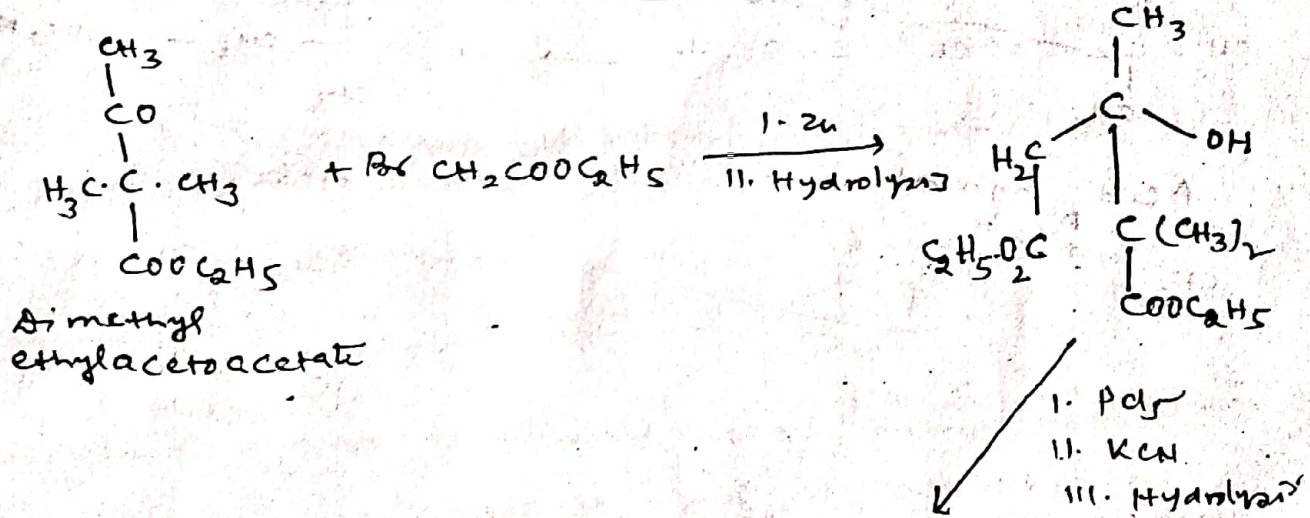 CH3
CO
H3C. C. CH3
COOC2H5
Dimethyl
ethylacetoacetate
+ Br CH2COOC2H5
I. Zn
II. Hydrolysis
CH3
C
OH
H2C
C2H5O2C
C(CH3)2
COOC2H5
I. PCl5
II. KCN.
III. Hydrolysis